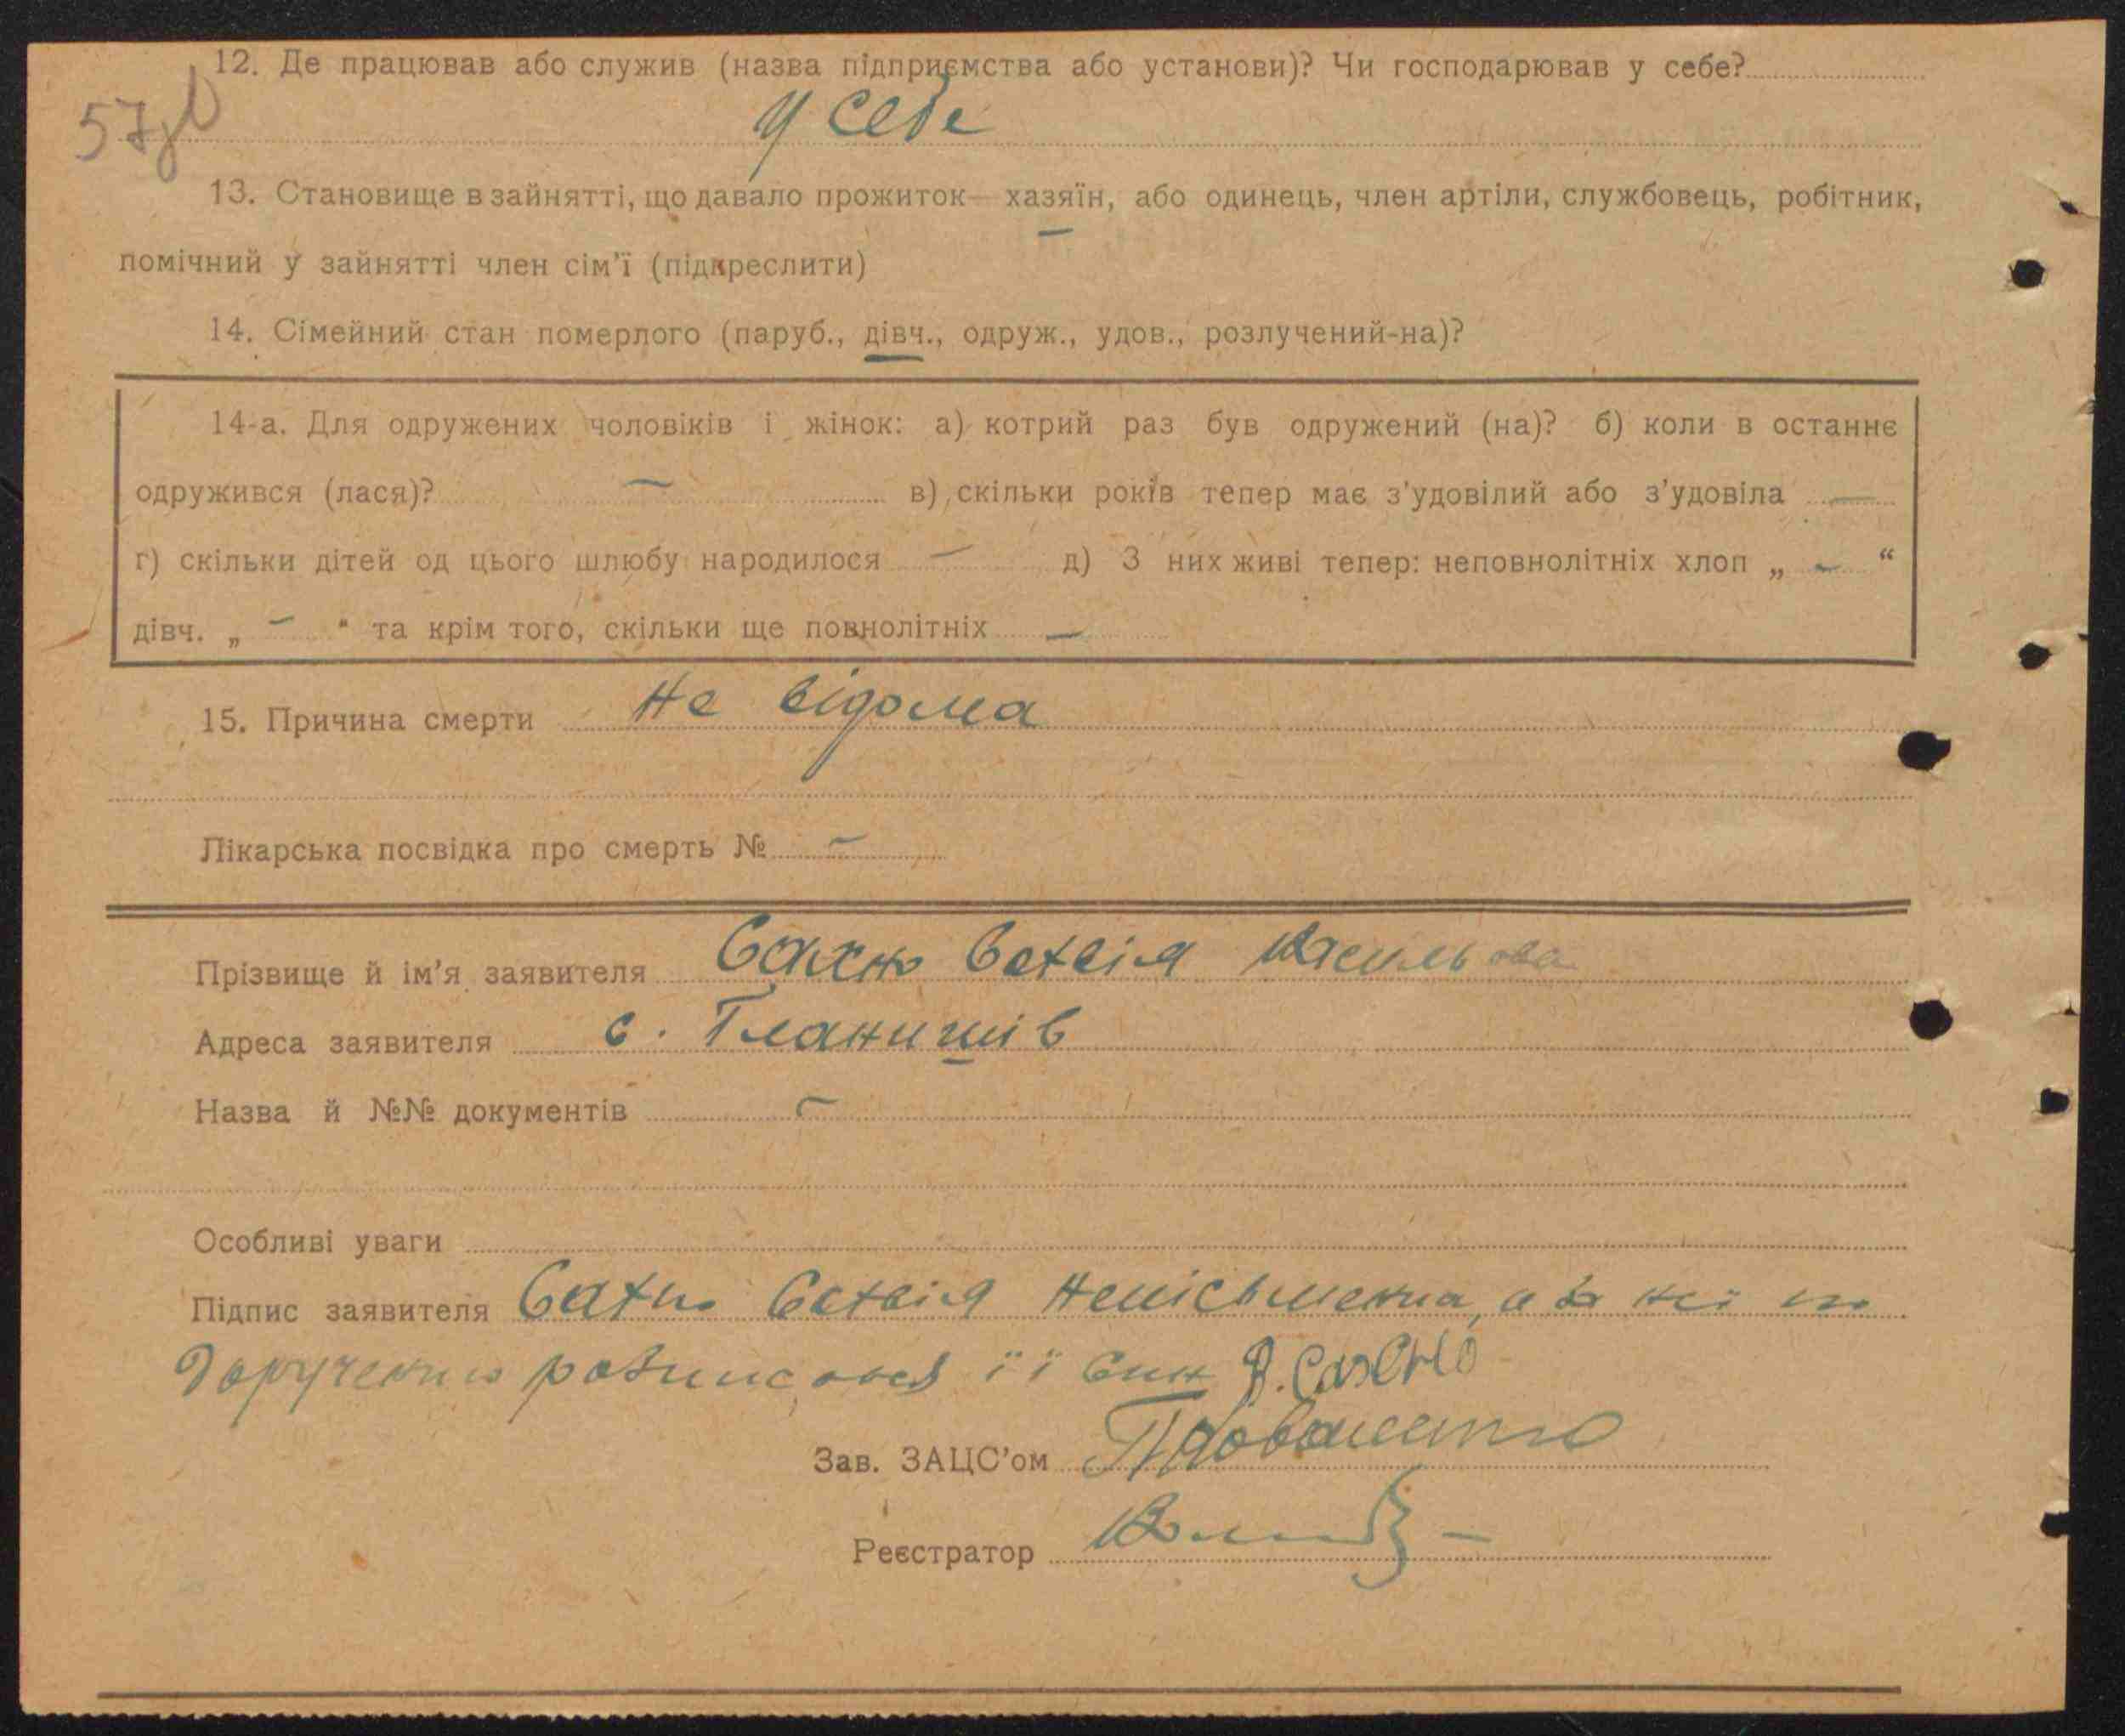 12. Де працював або служив (назва підприємства або установи)? Чи господарював у себе?
57
у себе
13. Становище в зайнятті, що давало прожиток— хазяїн, або одинець, член артіли, службовець, робітник,
помічний у зайнятті член сім'ї (підкреслити)
14. Сімейний стан померлого (паруб., дівч., одруж., удов., розлучений-на)?
14-а. Для одружених чоловіків і жінок: а) котрий раз був одружений (на)? б) коли в останнє
одружився (лася)? — в) скільки років тепер має з'удовілий або з'удовіла —
г) скільки дітей од цього шлюбу народилося — д) З них живі тепер: неповнолітніх хлоп „ — “
дівч. „ — “ та крім того, скільки ще повнолітніх —
15. Причина смерти не відома
Лікарська посвідка про смерть № —
Прізвище й ім'я заявителя Сахно
Адреса заявителя с. Гланишів
Назва й №№ документів —
Особливі уваги
Підпис заявителя Сахно неписьменна, а за неї по
дорученню розписався її син В. Сахно
Зав. ЗАЦС'ом
Реєстратор